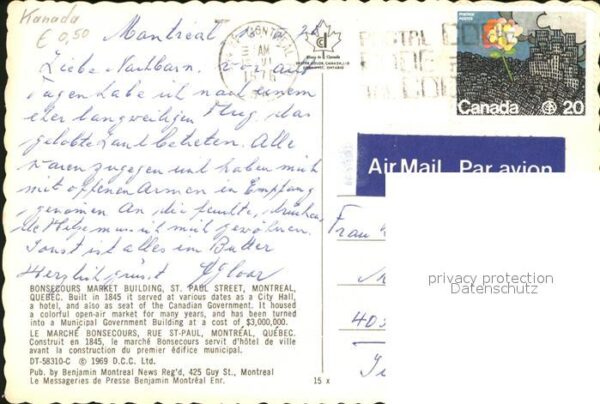 Kanada
€ 0,50
Montreal
Liebe Nachbarn. vor
Tagen habe ich nach einem
eher langweiligen Flug das
gelobte Land betreten. Alle
waren zugegen und haben mich
mit offenen Armen in Empfang
genommen An die feuchte, drückende
Hitze muss ich mich gewöhnen.
Sonst ist alles in Butter
Herzlich grüsst
MONTREAL
AM
POSTAL CODE
POSTAGE POSTES
Canada 20
Air Mail Par avion
Frau
privacy protection
Datenschutz
BONSECOURS MARKET BUILDING, ST. PAUL STREET, MONTREAL,
QUEBEC. Built in 1845 it served at various dates as a City Hall,
a hotel, and also as seat of the Canadian Government. It housed
a colorful open-air market for many years, and has been turned
into a Municipal Government Building at a cost of $3,000,000.
LE MARCHÉ BONSECOURS, RUE ST-PAUL, MONTRÉAL, QUÉBEC.
Construit en 1845, le marché Bonsecours servit d'hôtel de ville
avant la construction du premier édifice municipal.
DT-58310-C © 1969 D.C.C. Ltd.
Pub. by Benjamin Montreal News Reg'd, 425 Guy St., Montreal
Le Messageries de Presse Benjamin Montréal Enr.
15 x